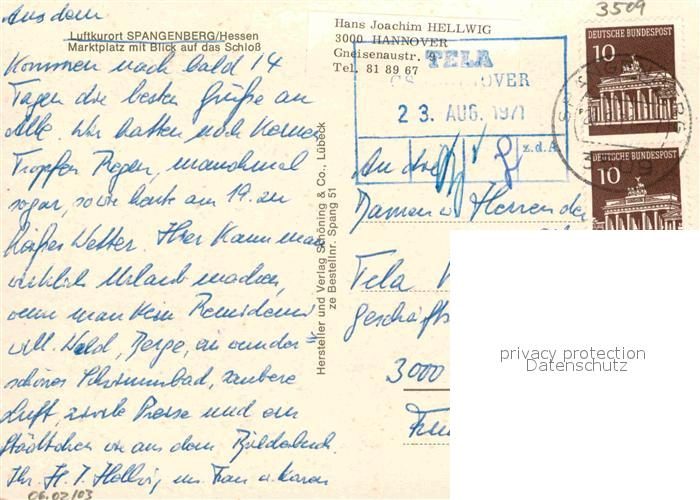 3509
Aus dem
Luftkurort SPANGENBERG/Hessen
Marktplatz mit Blick auf das Schloß
kommen nach bald 14
Tagen die besten Grüße an
Alle. Wir hatten noch keinen
Tropfen Regen, manchmal
sogar, so wie heute am 19. zu
heißes Wetter. Hier kann man
wirklich Urlaub machen,
wenn man kein Remidemi
will. Wald, Berge, ein wunder-
schönes Schwimmbad, saubere
Luft, zivile Preise und ein
Städtchen wie aus dem Bilderbuch.
Ihr H. J. Hellwig u. Frau u. Karen
06.02/03
Hersteller und Verlag Schöning & Co., Lübeck
ze Bestellnr. Spang 51
Hans Joachim HELLWIG
3000 HANNOVER
Gneisenaustr. 9
Tel. 81 89 67
TELA
HANNOVER
23. AUG. 1971
z.d.A.
DEUTSCHE BUNDESPOST
10
DEUTSCHE BUNDESPOST
10
An die
Damen u. Herren der
Tela
Geschäfts
3000
privacy protection
Datenschutz